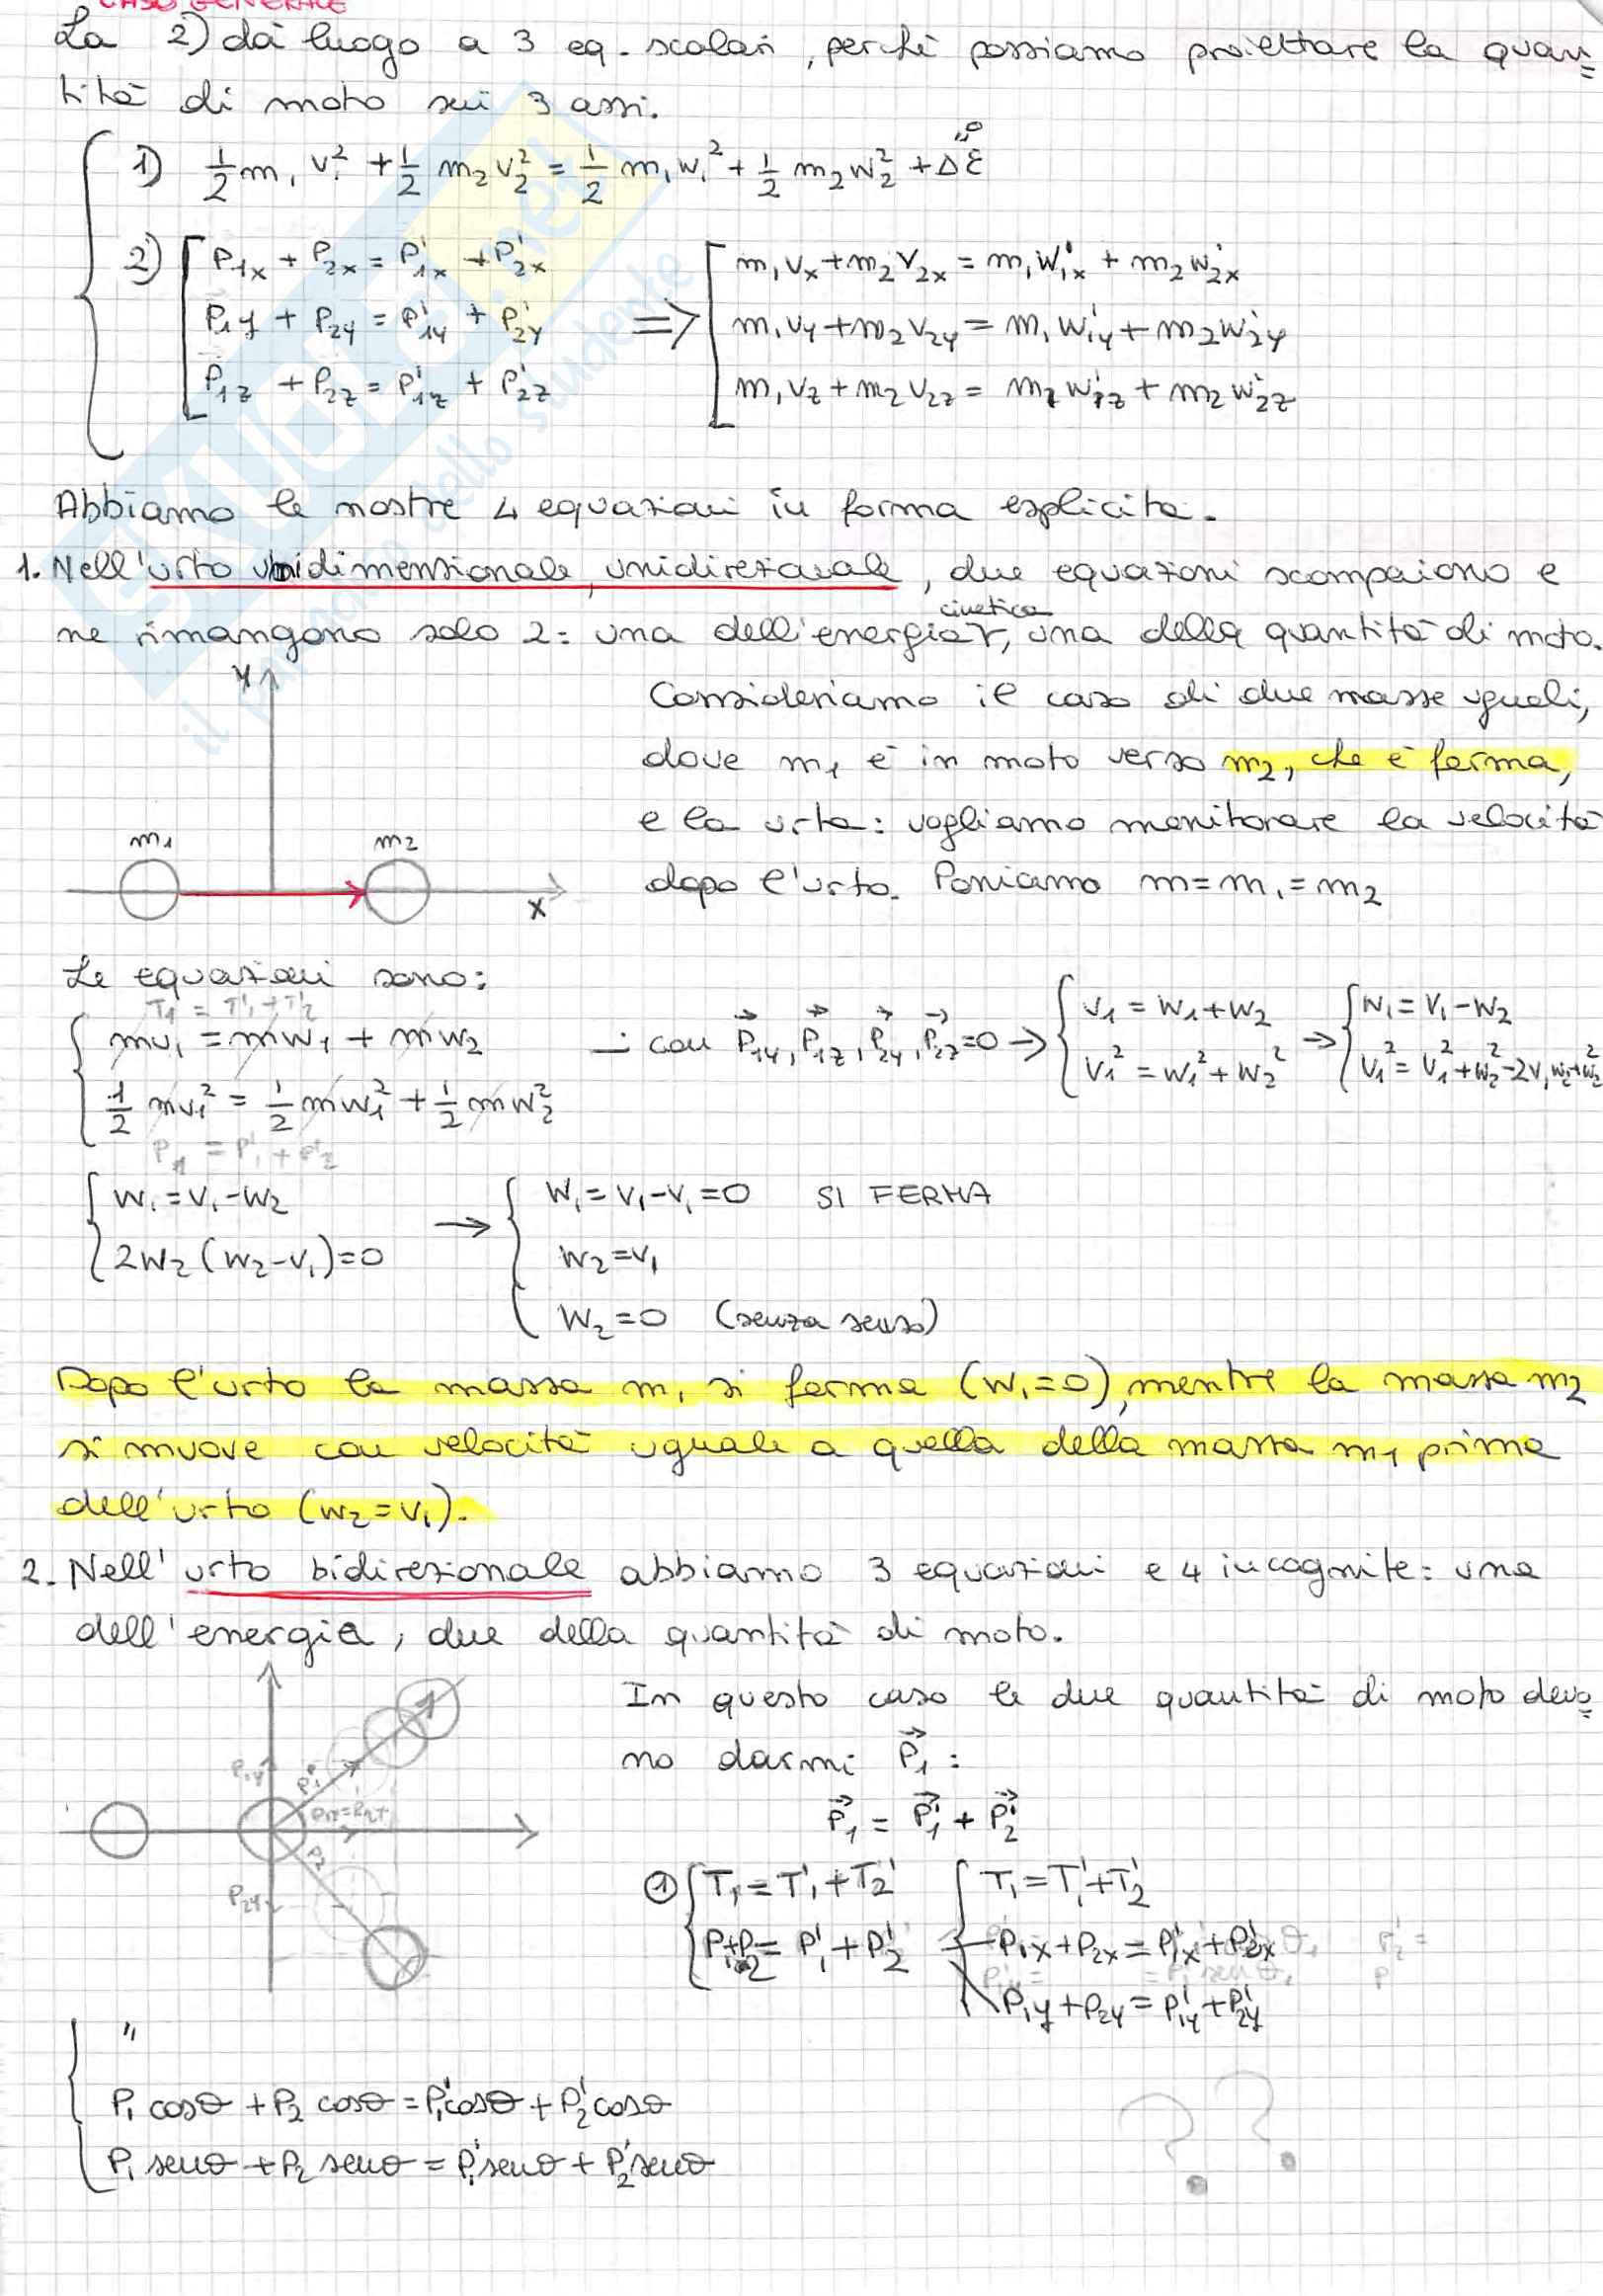 CASO GENERALE
La 2) dà luogo a 3 eq. scalari, perché possiamo proiettare la quan=
tità di moto sui 3 assi.
1) 1/2 m₁ v₁² + 1/2 m₂ v₂² = 1/2 m₁ w₁² + 1/2 m₂ w₂² + ΔƐ "0
2) P₁ₓ + P₂ₓ = P'₁ₓ + P'₂ₓ
P₁y + P₂y = P'₁y + P'₂y
P₁z + P₂z = P'₁z + P'₂z
=> m₁vₓ + m₂v₂ₓ = m₁w'₁ₓ + m₂w'₂ₓ
m₁vy + m₂v₂y = m₁w'₁y + m₂w'₂y
m₁vz + m₂v₂z = m₁w'₁z + m₂w'₂z
Abbiamo le nostre 4 equazioni in forma esplicita.
1. Nell'urto unidimensionale, unidirezionale, due equazioni scompaiono e
ne rimangono solo 2: una dell'energia cinetica, una della quantità di moto.
Y
m₁ m₂
X
Consideriamo il caso di due masse uguali,
dove m₁ è in moto verso m₂, che è ferma,
e la urta: vogliamo monitorare la velocità
dopo l'urto. Poniamo m = m₁ = m₂
Le equazioni sono:
T₁ = T'₁ + T'₂
mv₁ = mw₁ + mw₂
1/2 mv₁² = 1/2 mw₁² + 1/2 mw₂²
P₁ = P'₁ + P'₂
con P₁y, P₁z, P₂y, P₂z = 0 →
v₁ = w₁ + w₂
v₁² = w₁² + w₂²
→ w₁ = v₁ - w₂
v₁² = v₁² + w₂² - 2v₁w₂ + w₂²
w₁ = v₁ - w₂
2w₂ (w₂ - v₁) = 0
→ w₁ = v₁ - v₁ = 0 SI FERMA
w₂ = v₁
w₂ = 0 (senza senso)
Dopo l'urto la massa m₁ si ferma (w₁ = 0), mentre la massa m₂
si muove con velocità uguale a quella della massa m₁ prima
dell'urto (w₂ = v₁).
2. Nell'urto bidirezionale abbiamo 3 equazioni e 4 incognite: una
dell'energia, due della quantità di moto.
P₁y
P₁'
P₂
P₂y
In questo caso le due quantità di moto devo=
no darmi P₁:
P₁ = P'₁ + P'₂
① T₁ = T'₁ + T'₂
P₁+P₂ = P'₁ + P'₂
T₁ = T'₁ + T'₂
P₁x + P₂x = P'₁x + P'₂x
P₁y + P₂y = P'₁y + P'₂y
"
P₁ cosθ + P₂ cosθ = P'₁ cosθ + P'₂ cosθ
P₁ senθ + P₂ senθ = P'₁ senθ + P'₂ senθ
? ?
SKUOLA.net
il paradiso dello studente